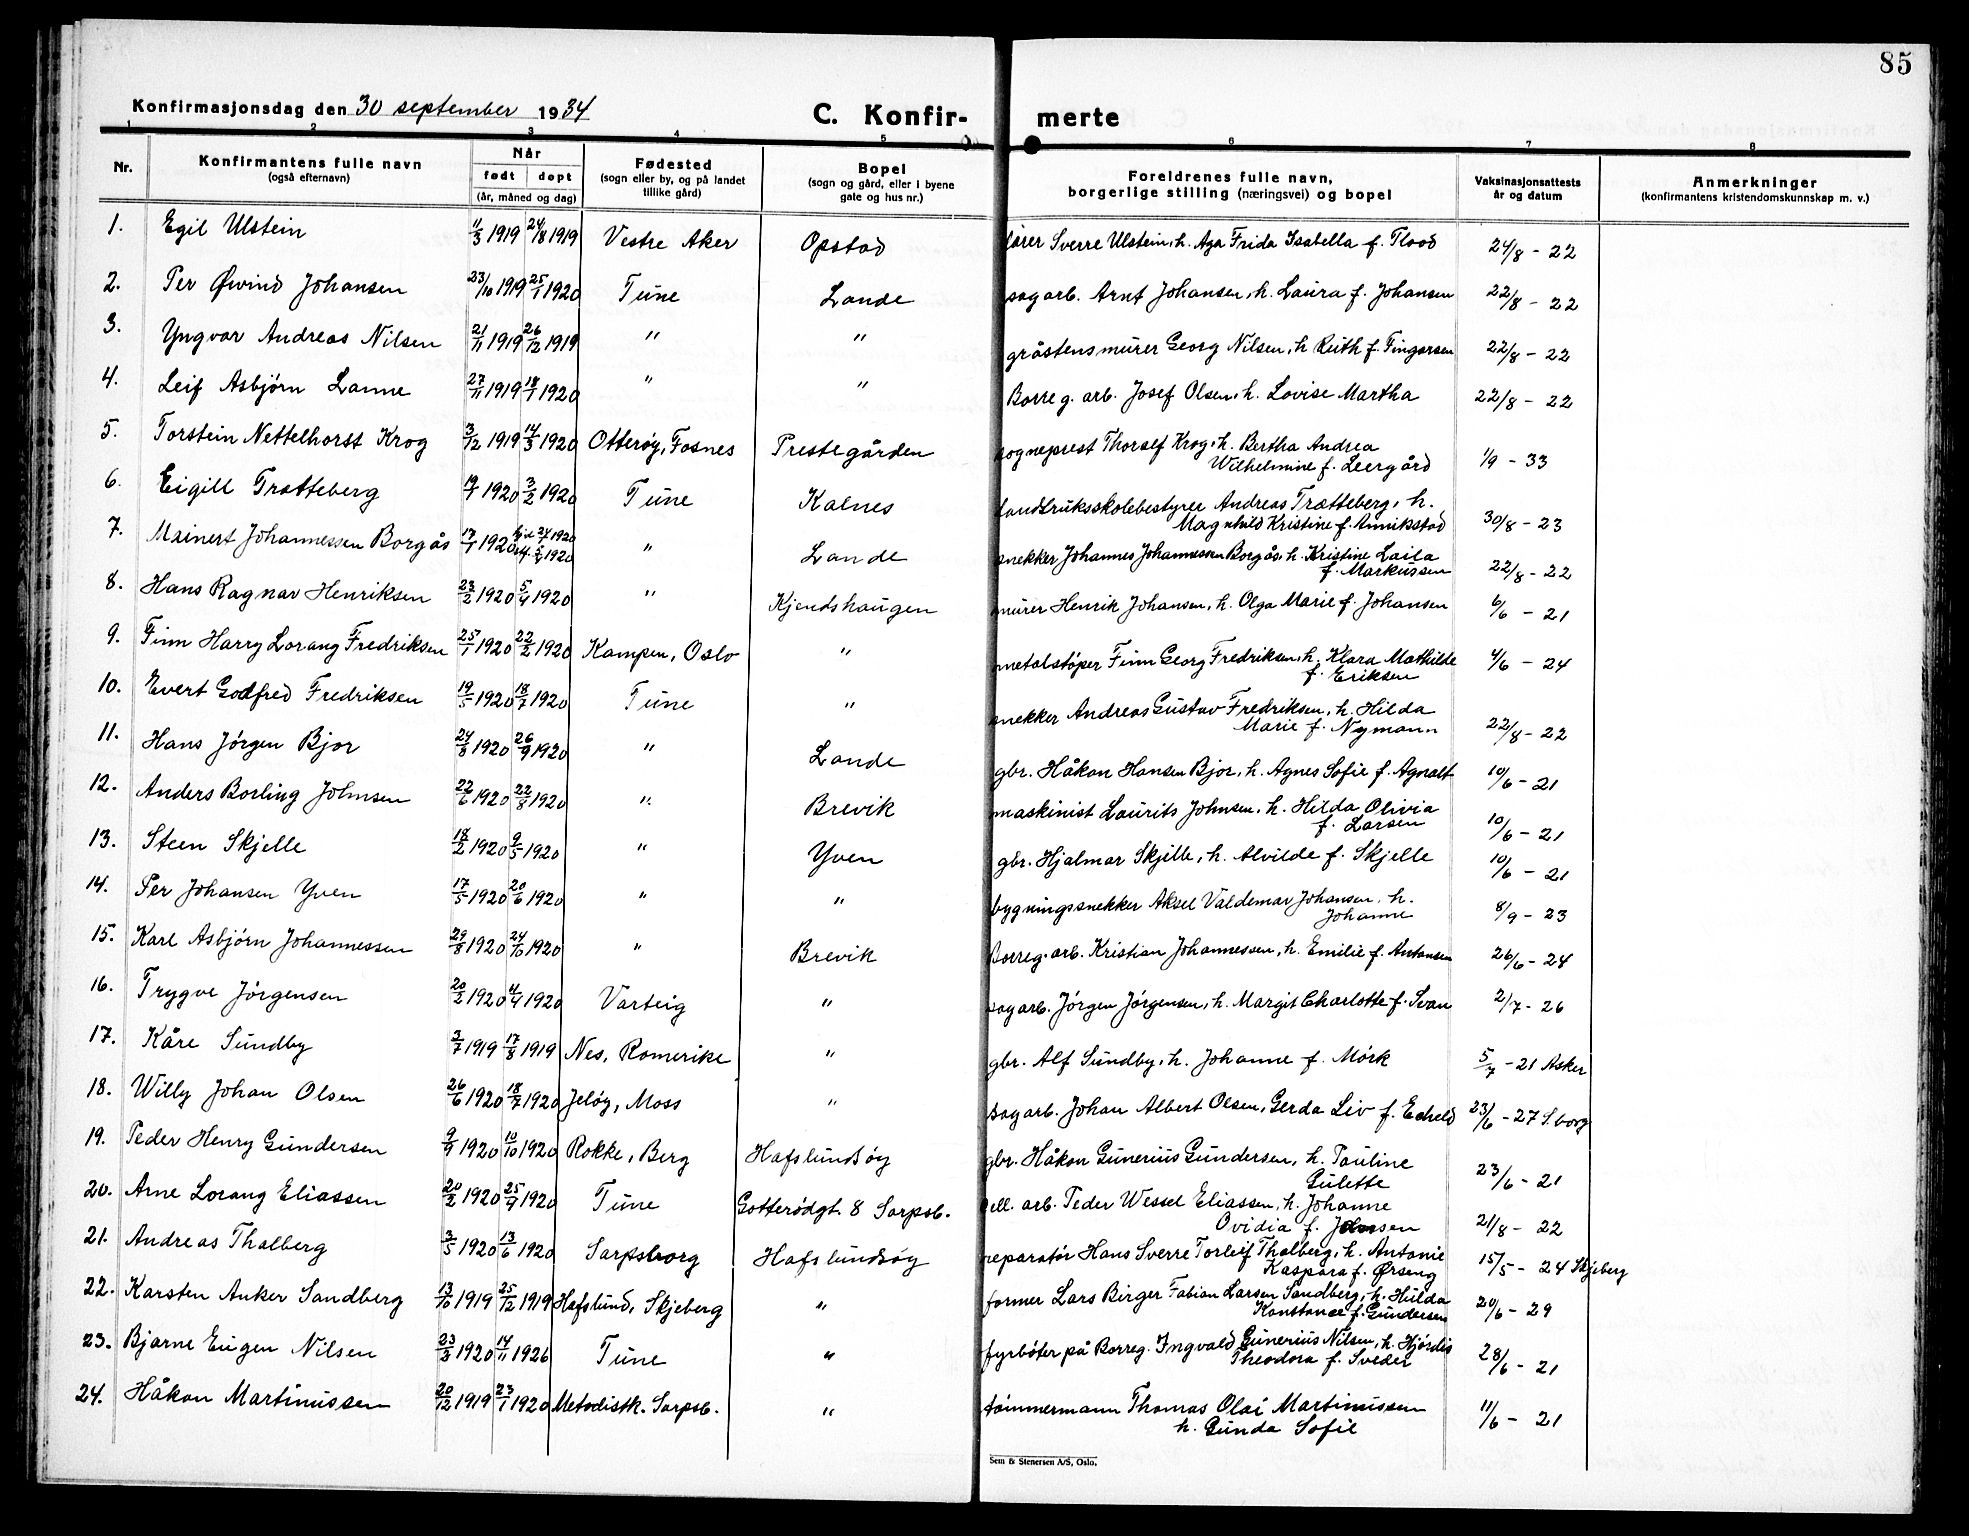 85
Konfirmasjonsdag den 30 september 1934
C. Konfir- merte
1 2 3 4 5 6 7 8
Nr. Konfirmantens fulle navn (også efternavn) Når født døpt (år, måned og dag) Fødested (sogn eller by, og på landet tillike gård) Bopel (sogn og gård, eller i byene gate og hus nr.) Foreldrenes fulle navn, borgerlige stilling (næringsvei) og bopel Vaksinasjonsattests år og datum Anmerkninger (konfirmantens kristendomskunnskap m. v.)
1. Egil Ulstein 11/3 1919 24/8 1919 Vestre Aker Opstad fører Sverre Ulstein, h. Aga Frida Isabella f. Flood 24/8 - 22
2. Per Øivind Johansen 23/10 1919 25/1 1920 Tune Lande sagarb. Arnt Johansen, h. Laura f. Johansen 22/8 - 22
3. Yngvar Andreas Nilsen 21/11 1919 26/12 1919 " " gråstensmurer Georg Nilsen, h. Ruth f. Fingarsen 22/8 - 22
4. Leif Asbjørn Lanne 27/11 1919 18/1 1920 " " Borreg. arb. Josef Olsen, h. Lovise Martha 22/8 - 22
5. Torstein Nettelhorst Krog 3/12 1919 14/3 1920 Otterøy, Fosnes Prestegården sogneprest Thoralf Krog, h. Bertha Andrea
Wilhelmine f. Leergård 1/9 - 33
6. Eigill Tratteberg 19/1 1920 3/2 1920 Tune Kalnes landbruksskolebestyrer Andreas Trætteberg, h.
Magnhild Kristine f. Annikstad 30/8 - 23
7. Meinert Johannessen Borgås 17/1 1920 " Lande snekker Johannes Johannessen Borgås, h. Kristine Laila
f. Markussen 22/8 - 22
8. Hans Ragnar Henriksen 23/2 1920 5/4 1920 " Kjendshaugen murer Henrik Johansen, h. Olga Marie f. Johansen 6/6 - 21
9. Finn Harry Lorang Fredriksen 25/1 1920 22/2 1920 Kampen, Oslo " metalstøper Finn Georg Fredriksen, h. Klara Mathilde
f. Eriksen 4/6 - 24
10. Evert Godfred Fredriksen 19/5 1920 18/7 1920 Tune " snekker Andreas Gustav Fredriksen, h. Hilda
Marie f. Nymann 22/8 - 22
11. Hans Jørgen Bjor 24/8 1920 26/9 1920 " Lande gbr. Håkon Hansen Bjor, h. Agnes Sofie f. Agnalt 10/6 - 21
12. Anders Borling Johnsen 22/6 1920 22/8 1920 " Brevik maskinist Laurits Johnsen, h. Hilda Olivia
f. Larsen 10/6 - 21
13. Steen Skjelle 18/2 1920 9/5 1920 " Yven gbr. Hjalmar Skjelle, h. Alvilde f. Skjelle 10/6 - 21
14. Per Johansen Yven 17/5 1920 20/6 1920 " " bygningssnekker Aksel Valdemar Johansen, h.
Johanne 8/9 - 23
15. Karl Asbjørn Johannessen 29/8 1920 24/10 1920 " Brevik Borreg. arb. Kristian Johannessen, h. Emilie f. Antonsen 26/6 - 28
16. Trygve Jørgensen 20/2 1920 4/4 1920 Varteig " sagarb. Jørgen Jørgensen, h. Margit Charlotte f. Svan 2/7 - 26
17. Kåre Sundby 3/7 1919 17/8 1919 Nes, Romerike " gbr. Alf Sundby, h. Johanne f. Mørk 5/7 - 21 Asker
18. Willy Johan Olsen 26/6 1920 18/7 1920 Jeløy, Moss " sagarb. Johan Albert Olsen, Gerda Liv f. Edheld 23/6 - 27 S.borg
19. Peder Henry Gundersen 9/9 1920 10/10 1920 Rokke, Berg Hafslundsøy gbr. Håkon Gunerius Gundersen, h. Pauline
Gulette 23/6 - 21
20. Arne Lorang Eliassen 20/2 1920 25/4 1920 Tune Gotterødgt. 8 Sarpsb. cell. arb. Peder Wessel Eliassen, h. Johanne
Ovidia f. Johnsen 21/8 - 22
21. Andreas Thalberg 3/5 1920 13/6 1920 Sarpsborg Hafslundsøy reparatør Hans Sverre Torleif Thalberg, h. Antonie
Kaspara f. Ørseng 15/5 - 24 Skjeberg
22. Karsten Anker Sandberg 13/10 1919 25/12 1919 Hafslund, Skjeberg " former Lars Birger Fabian Larsen Sandberg, h. Hulda
Konstanse f. Gundersen 20/6 - 29
23. Bjarne Eugen Nilsen 23/3 1920 14/11 1926 Tune " fyrbøter på Borreg. Ingvald Gunerius Nilsen, h. Hjørdis
Theodora f. Sveder 28/6 - 21
24. Håkon Martinussen 20/12 1919 23/1 1920 Metodistk. Sarpsb. " tømmermann Thomas Olai Martinussen
h. Gunda Sofie 11/6 - 21
Sem & Stenersen A/S, Oslo.